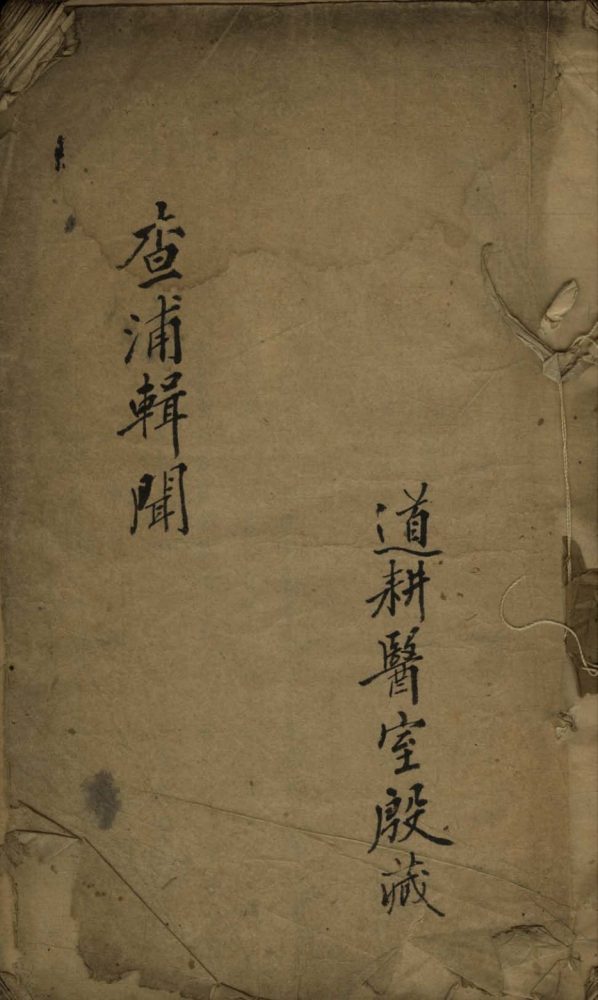 道耕醫室殷藏
查浦輯聞